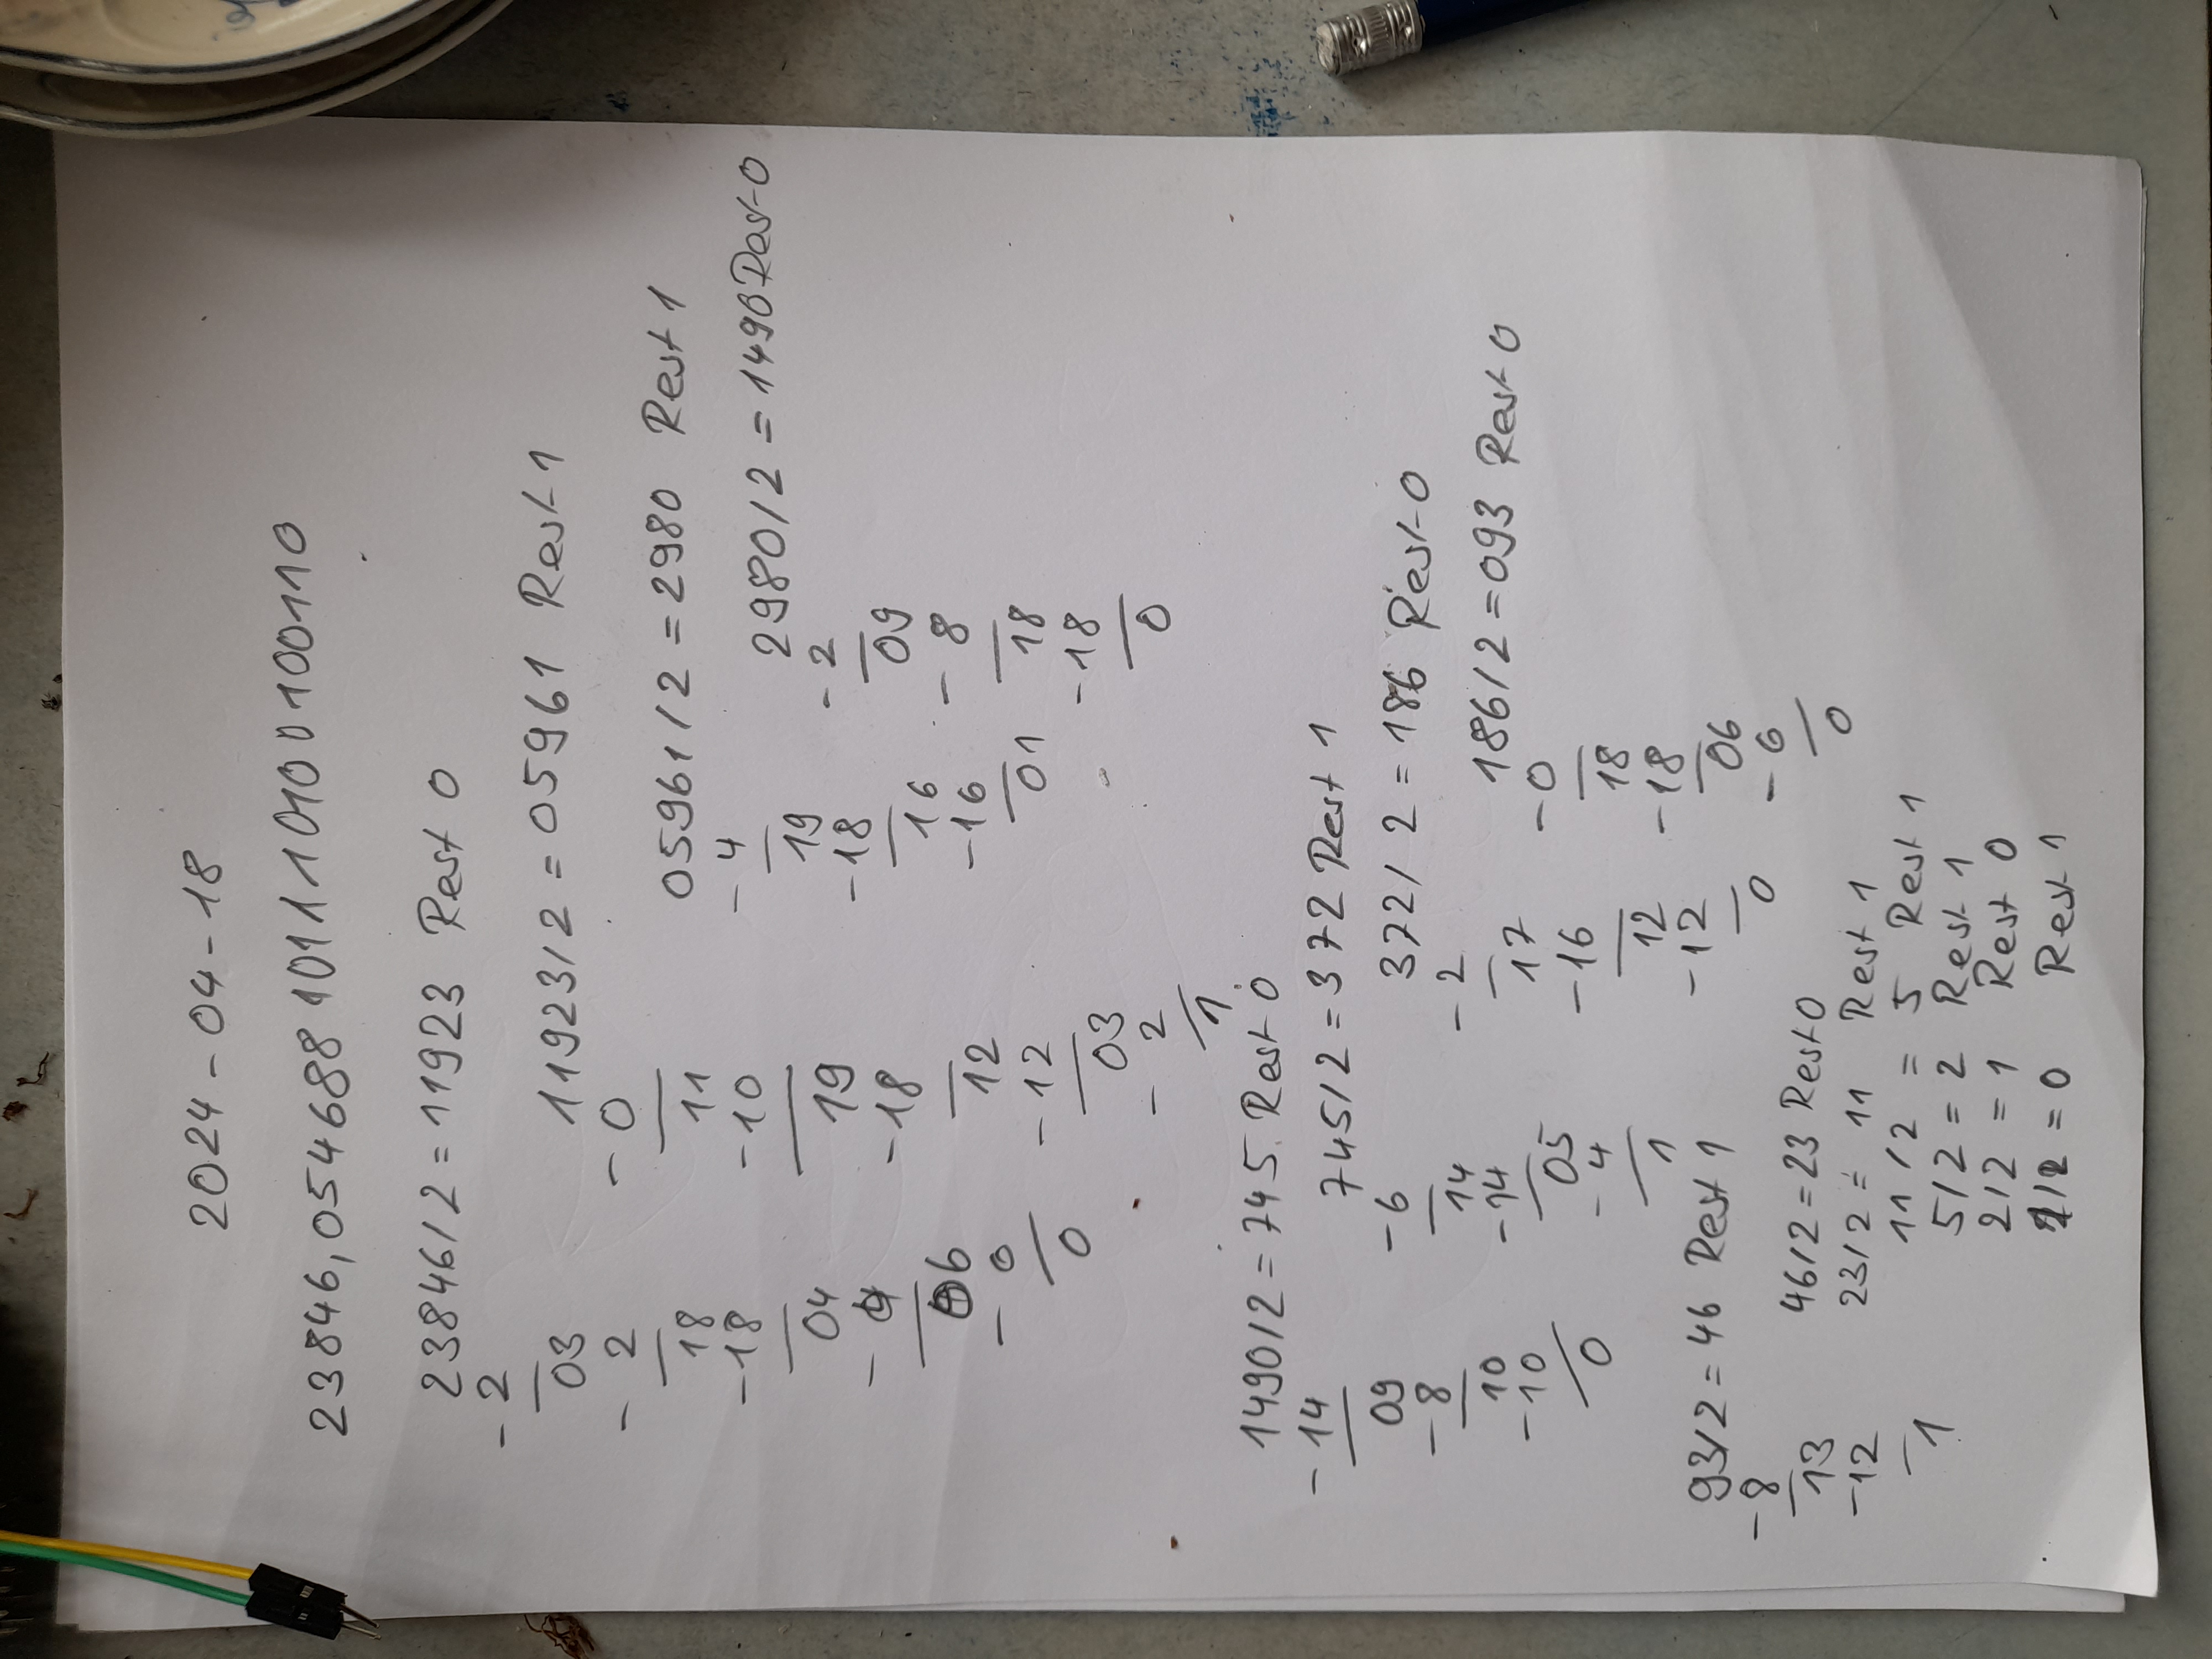 2024-04-18
23846,054688 101110100100110
23846/2=11923 Rest 0
-2
03
-2
18
-18
04
-4
06
-0
0
11923/2=05961 Rest 1
-0
11
-10
19
-18
12
-12
03
-2
1
05961/2=2980 Rest 1
-4
19
-18
16
-16
01
2980/2=1490 Rest 0
-2
09
-8
18
-18
0
1490/2=745 Rest 0
-14
09
-8
10
-10
0
745/2=372 Rest 1
-6
14
-14
05
-4
1
372/2=186 Rest 0
-2
17
-16
12
-12
0
186/2=093 Rest 0
-0
18
-18
06
-6
0
93/2=46 Rest 1
-8
13
-12
1
46/2=23 Rest 0
23/2=11 Rest 1
11/2=5 Rest 1
5/2=2 Rest 1
2/2=1 Rest 0
1/2=0 Rest 1